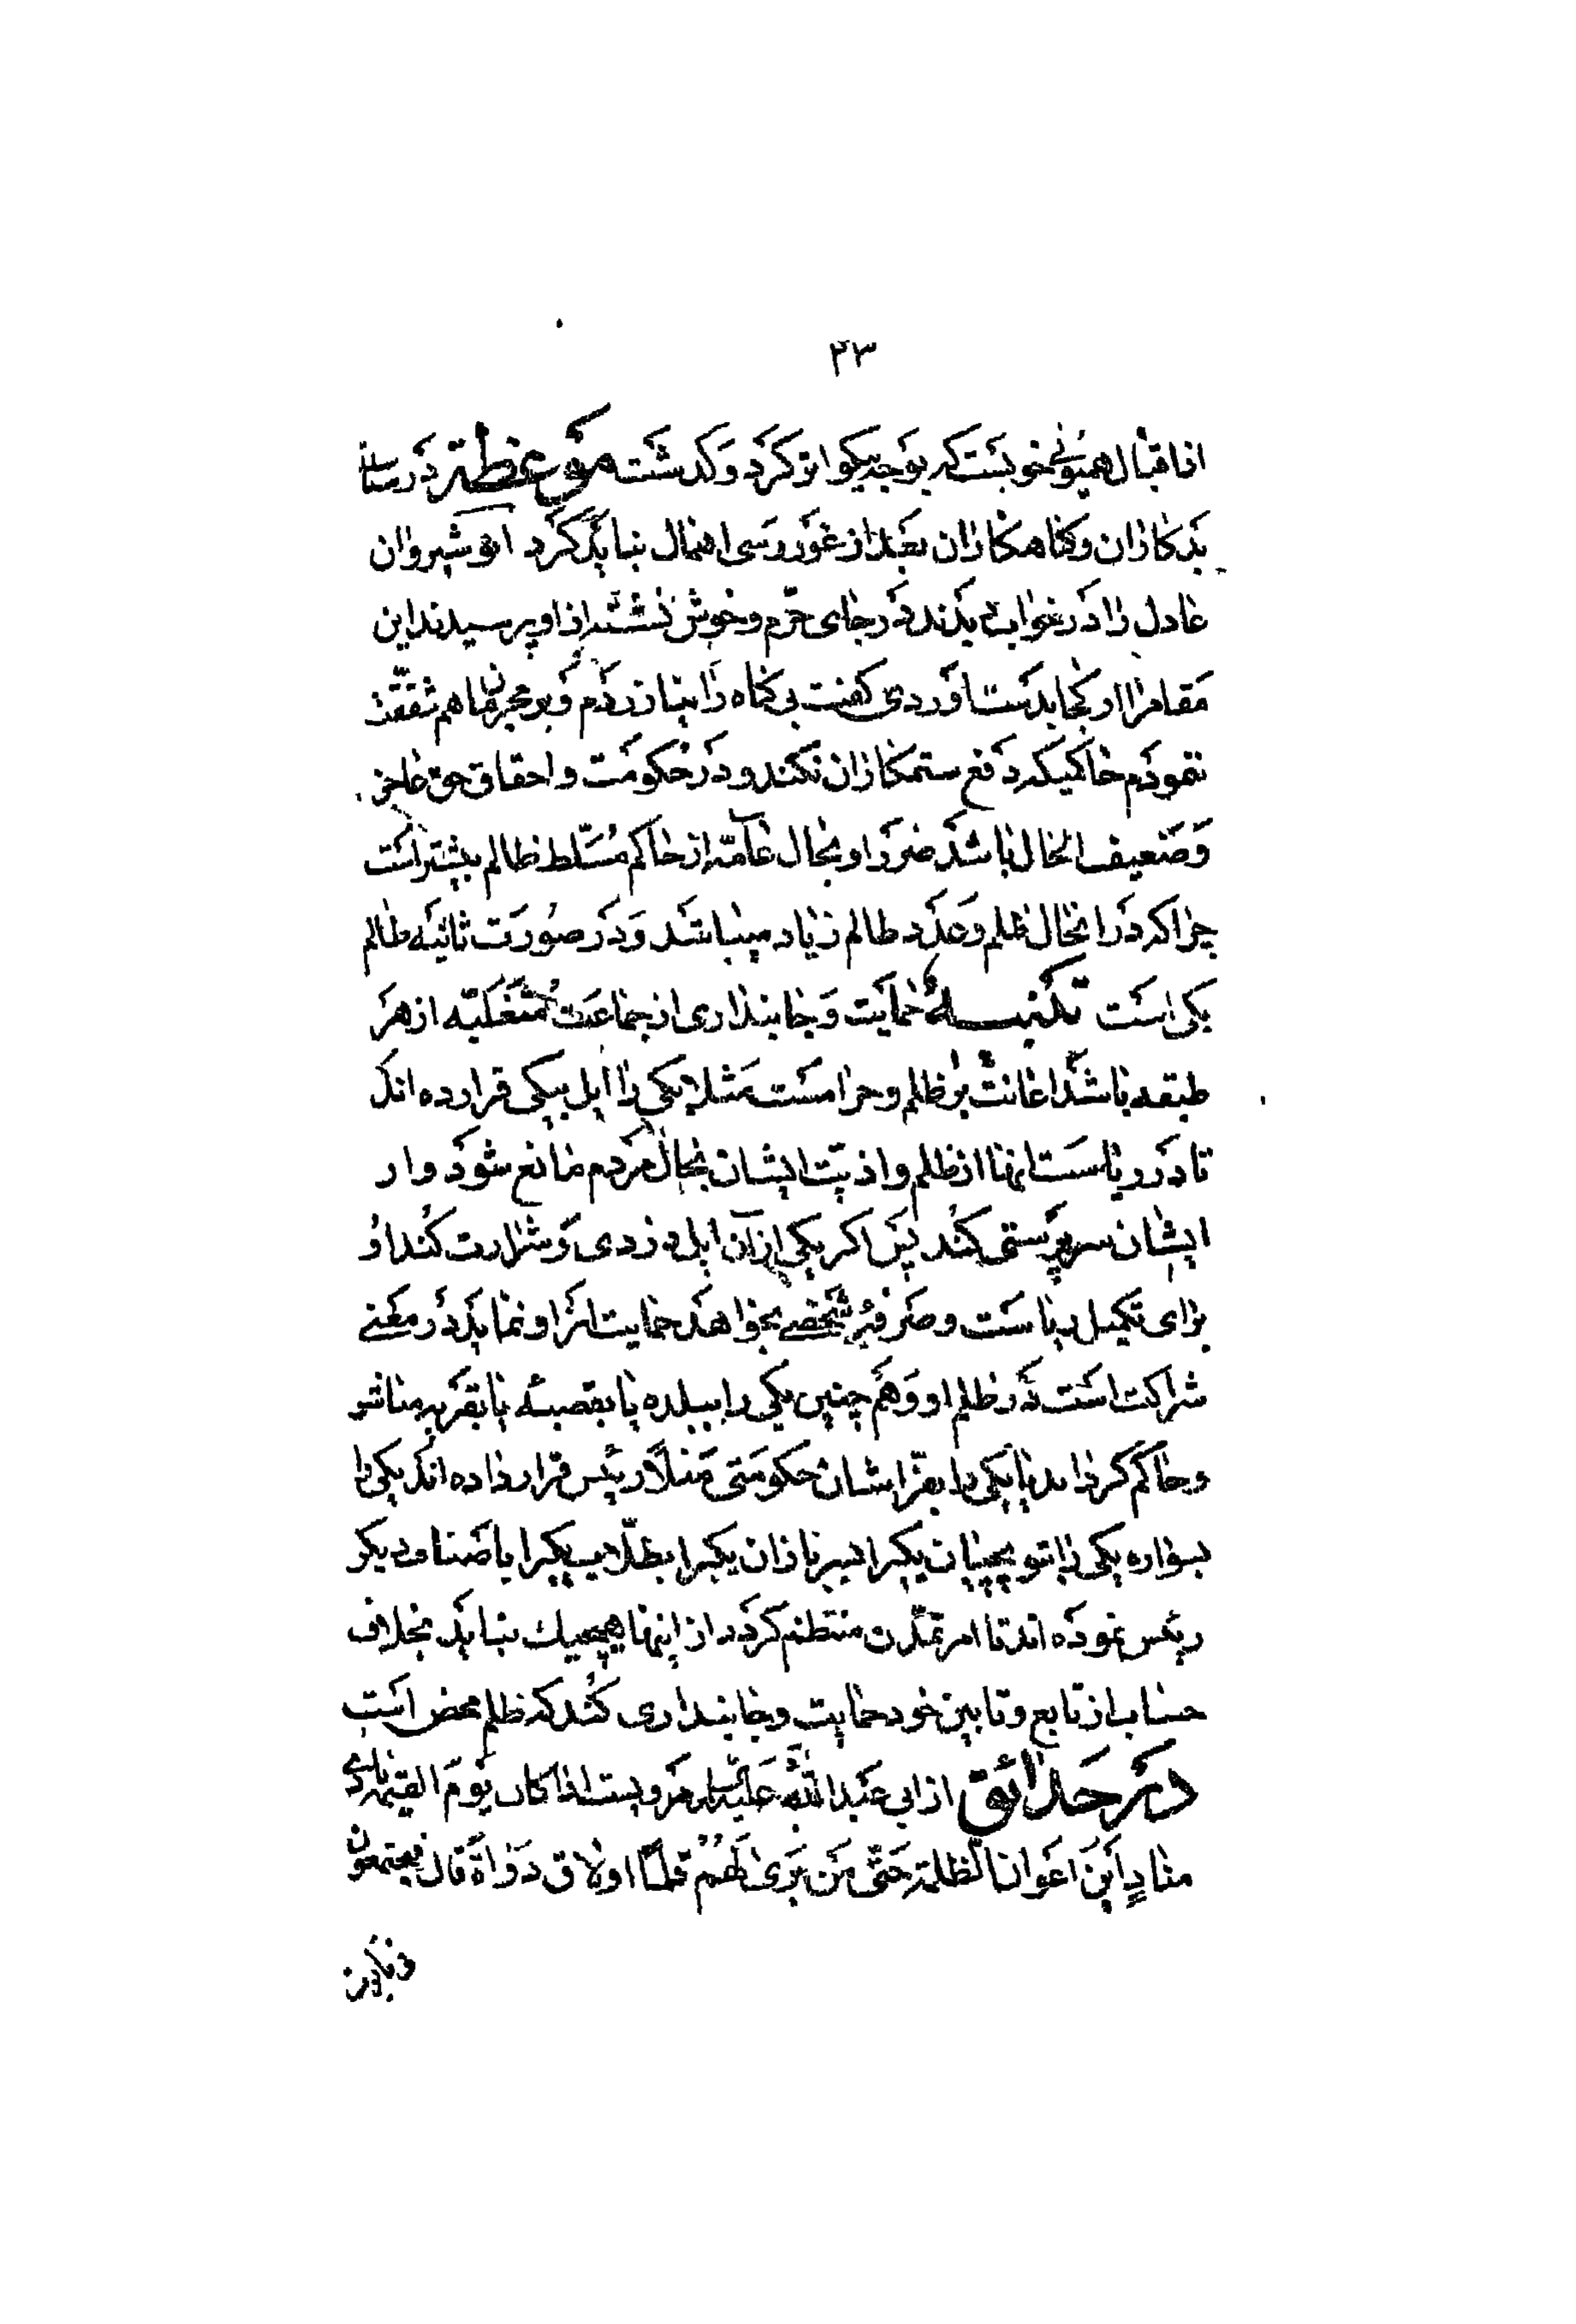 ۲۳
از اقبال همیونی خویست که بوجه نیکو اثر کرد و گذشت موعظة در سیاست
بدکاران و گناهکاران بعد از غوررسی اهمال نباید کرد انوشیروان
عادل را در خواب دیدند در جای خرم و خوش نشسته از او پرسیدند این
مقام را از کجا بدست آوردی گفت بی گناه را نیازردم و بر مجرمان هم شفقت
ننمودم حاکمیکه دفع ستمکاران نکند و در حکومت و احقاق حق عاجز
و ضعیف الحال باشد ضرر او بحال عامّه از حاکم مسلّط ظالم بیشتر است
چرا که در آنحال ظلم و عدد ظالم زیاد میباشد و در صورت ثانیه ظالم
یکی است تنبیه حمایت و جانبداری از جماعت متغلّبه از هر
طبقه باشد اعانت بر ظلم و حرامست مثلا یکی را ایل بیکی قرار ده اند
تا در ریاست آنها از ظلم و اذیّت ایشان بحال مردم مانع شود و از
ایشان سرپرستی کند پس اگر یکی از آن ایل دزدی و شرارت کند او
برای تکمیل ریاست و صرفه شخصی بخواهد حمایت از او نماید در معنی
شراکت است در ظلم او و هم چنین یکی را ببلده یا بقصبه یا بقریه مباشر
و حاکم کرده اند یا یکی را بفرّاشان حکومتی مثلاً رئیس قرار داده اند یکی را
بسواره یکی را بتوپچیان یکیرا بسربازان یکیرا بطلّاب یکیرا باصناف دیگر
رئیس نموده اند تا امر تمدّن منتظم گردد از اینها هیچیک نباید بخلاف
حساب از تابع و تابین خود حمایت و جانبداری کند که ظلم محض است
در حدائق از ابی عبدالله علیه السلام مرویست اذا کان یوم القیمة نادی
منادٍ این اعوان الظلمة حتّی من بری لهم قلماً او لاق دواة قال فیجتمعون